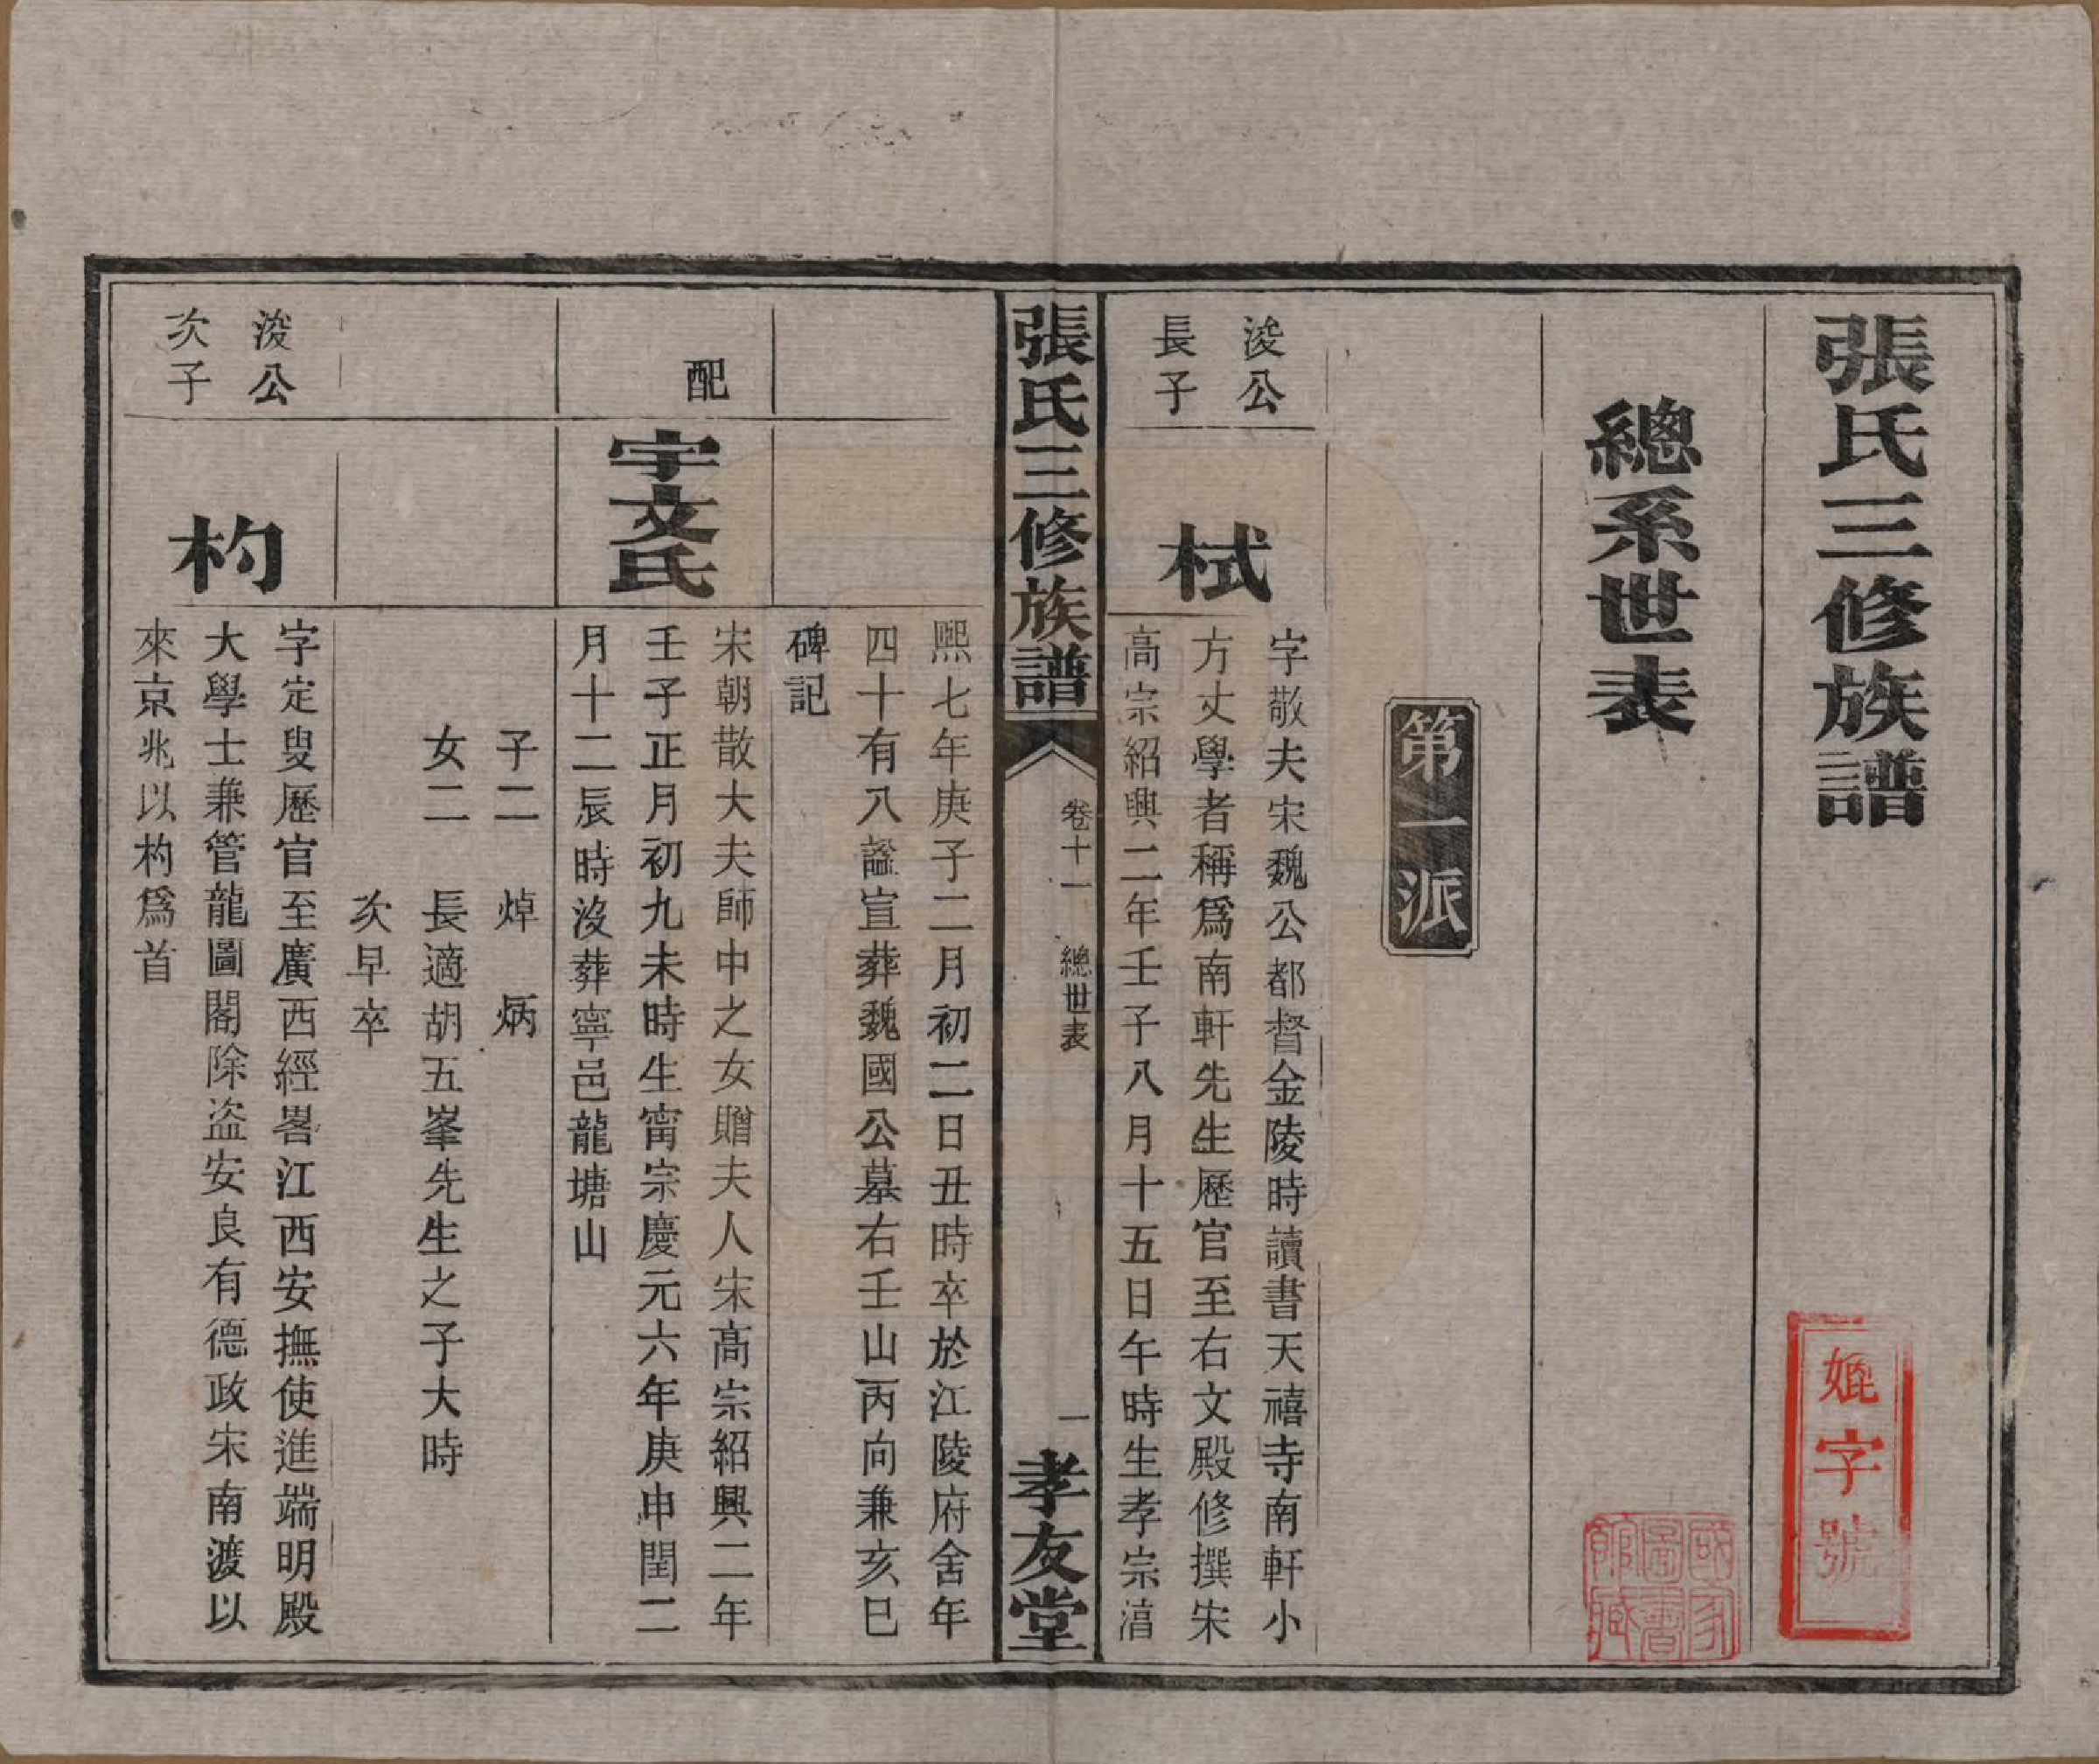 張氏三修族譜
總系世表
第一派
浚公
長子
栻
字敬夫宋魏公都督金陵時讀書天禧寺南軒小
方丈學者稱爲南軒先生歷官至右文殿修撰宋
高宗紹興二年壬子八月十五日午時生孝宗湻
張氏三修族譜
卷十一 總世表
一
孝友堂
熙七年庚子二月初二日丑時卒於江陵府舍年
四十有八謚宣葬魏國公墓右壬山丙向兼亥巳
碑記
配
宇文氏
宋朝散大夫師中之女贈夫人宋高宗紹興二年
壬子正月初九未時生甯宗慶元六年庚申閏二
月十二辰時沒葬寧邑龍塘山
子二 焯 炳
女二 長適胡五峯先生之子大時
次早卒
浚公
次子
杓
字定叟歷官至廣西經畧江西安撫使進端明殿
大學士兼管龍圖閣除盗安良有德政宋南渡以
來京兆以杓爲首
字號
國家
圖書
館藏